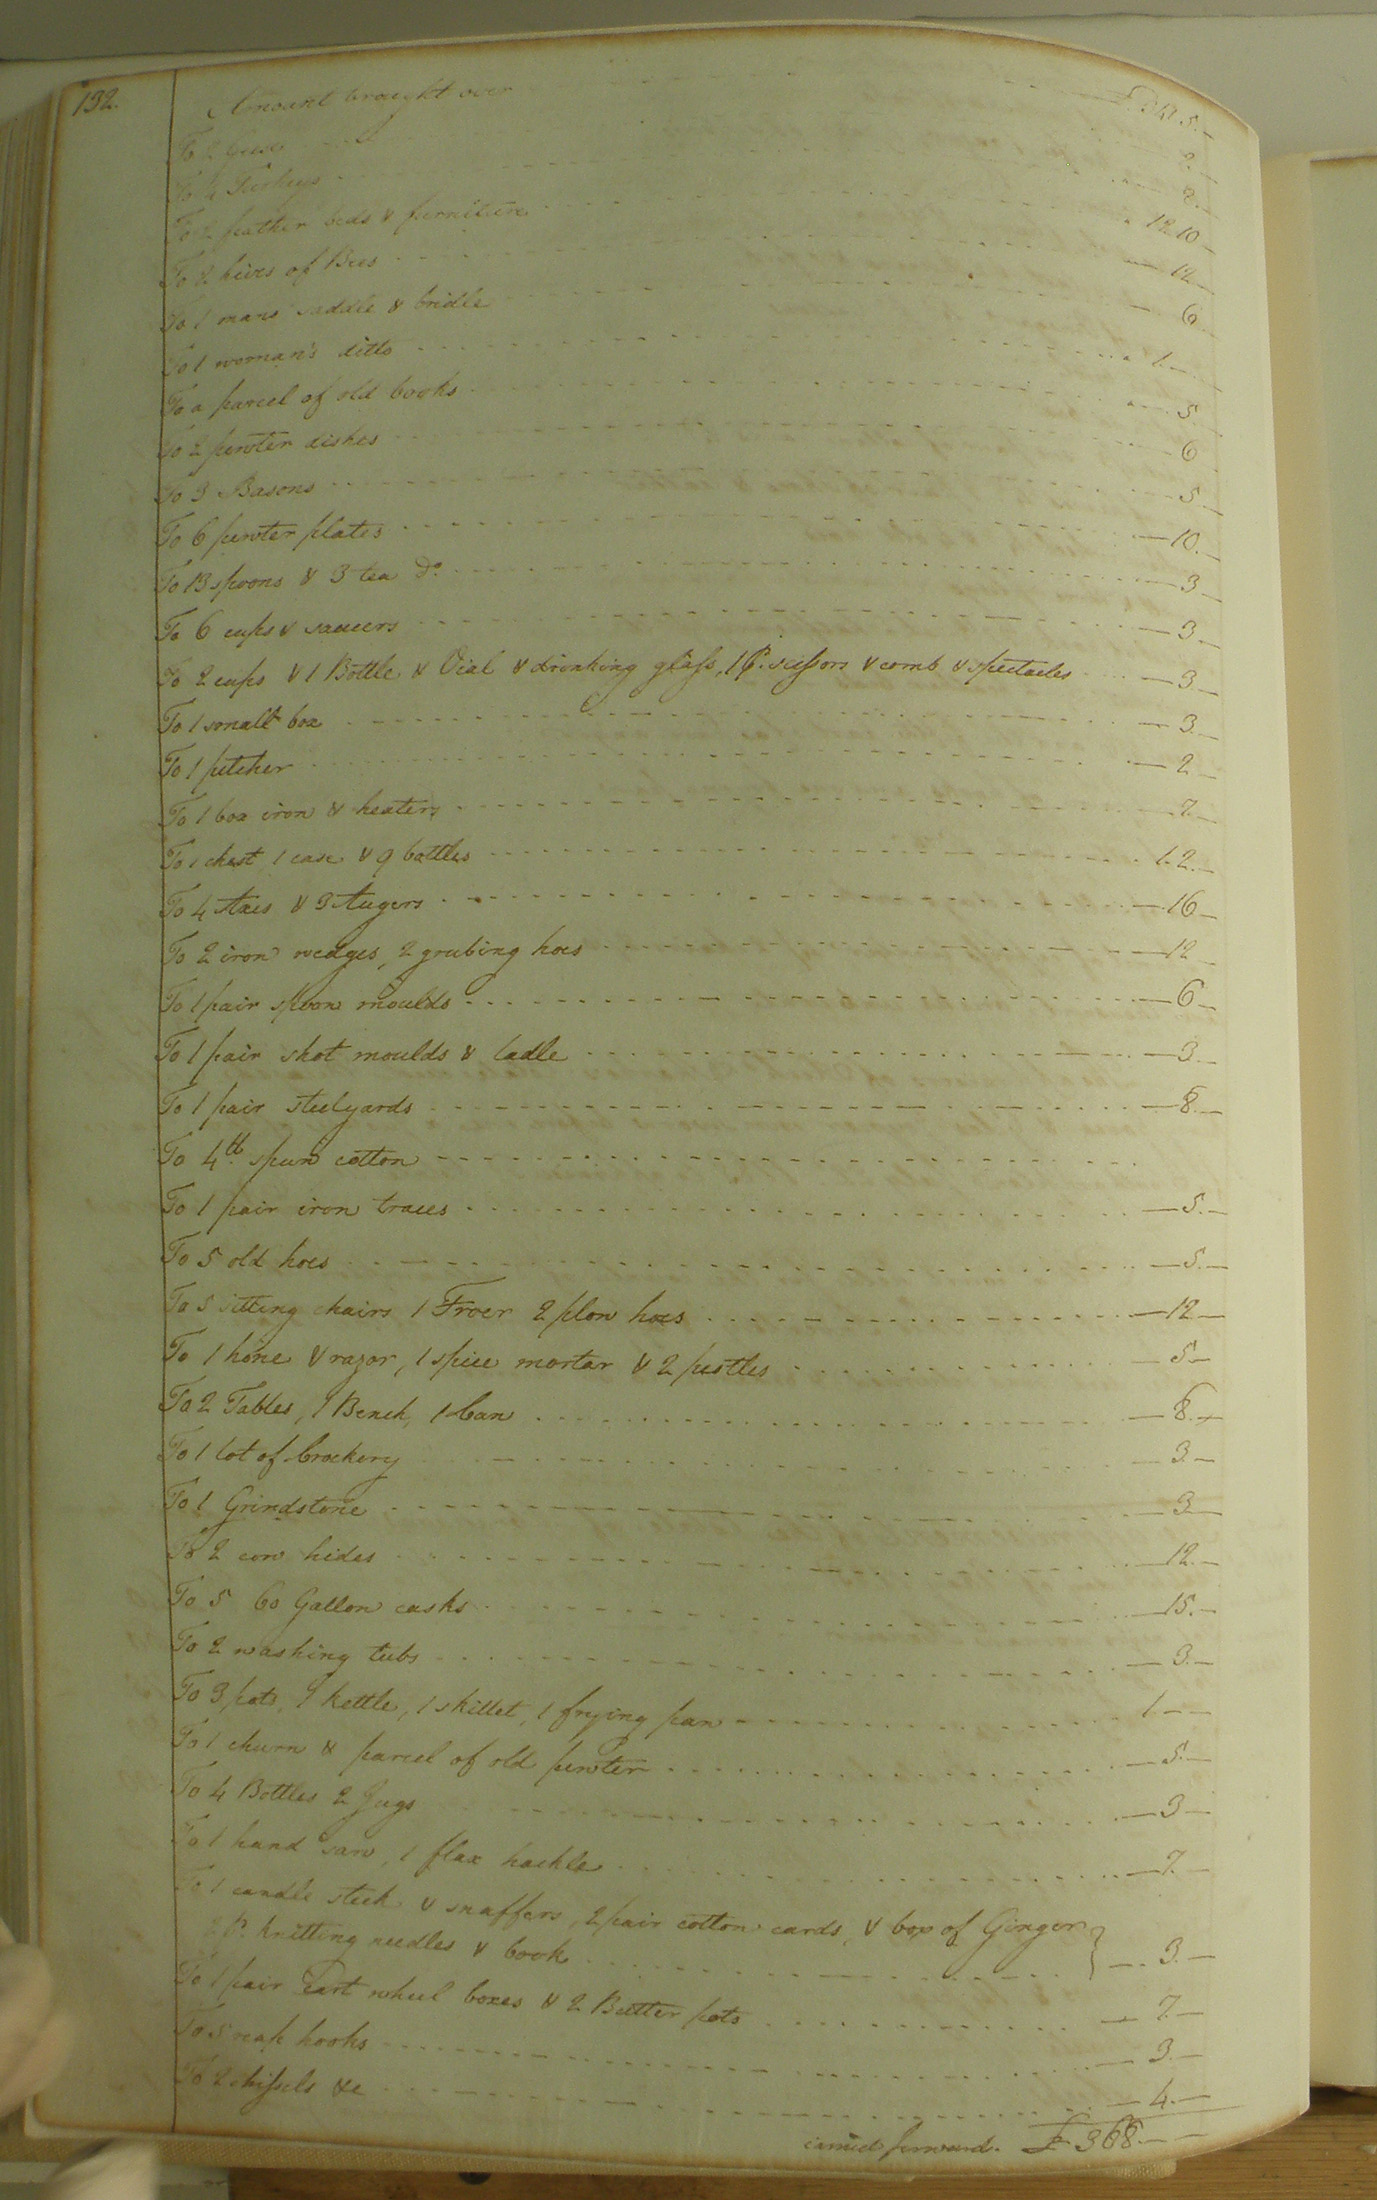 132.
Amount brought over £341.5.—
To 2 Geese 2.—
To 4 Turkeys 8.—
To 2 feather beds & furniture 12 10 —
To 2 hives of Bees — 12 —
To 1 mans saddle & bridle — 6.
To 1 woman's ditto 1.—
To a parcel of old books — 5.—
To 2 pewter dishes — 6
To 3 Basons — 5.—
To 6 pewter plates — 10.—
To 13 spoons & 3 tea do. — 3 —
To 6 cups & saucers — 3.—
To 2 cups & 1 Bottle & Vial & drinking glass, 1 Pr. scissors & comb & spectacles — 3.—
To 1 small box — 3.—
To 1 pitcher — 2 —
To 1 box iron & heaters — 7.—
To 1 chest 1 case & 9 bottles 1.2.—
To 4 Axes & 3 Augers — 16 —
To 2 iron wedges, 2 grubing hoes — 12 —
To 1 pair spoon moulds — 6 —
To 1 pair shot moulds & ladle — 3.—
To 1 pair steelyards — 8.—
To 4 lb. spun cotton
To 1 pair iron traces — 5.—
To 5 old hoes — 5.—
To 5 sitting chairs 1 Froer 2 plow hoes — 12 —
To 1 hone & razor, 1 spice mortar & 2 pestles — 5 —
To 2 Tables, 1 Bench, 1 Can — 8.—
To 1 lot of Crockery — 3.—
To 1 Grindstone — 3 —
To 2 cow hides — 12.—
To 5 60 Gallon casks — 15.—
To 2 washing tubs — 3.—
To 3 pots, 1 kettle, 1 skillet, 1 frying pan 1 — —
To 1 churn & parcel of old pewter — 5.—
To 4 Bottles 2 Jugs — 3 —
To 1 hand saw, 1 flax hackle — 7.—
To 1 candle stick & snaffers, 2 pair cotton cards, & box of Ginger }
Pr. knitting needles & book — 3.—
To 1 pair Cart wheel boxes & 2 Butter pots — 7.—
To 5 reap hooks — 3.—
To 2 chissels &c — 4.—
carried forward. £ 368.— —